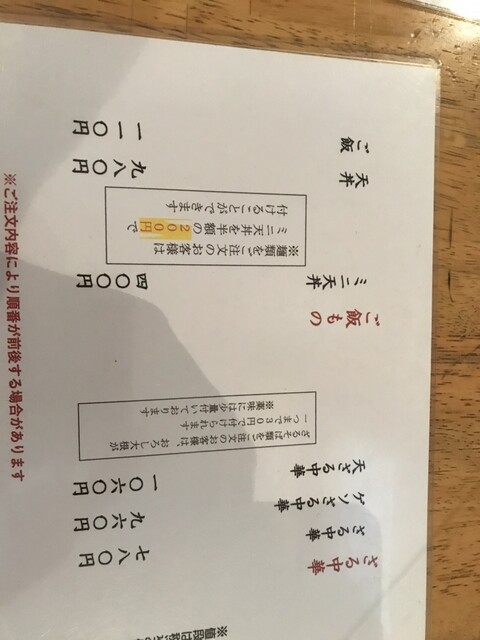 ※値段は税
ざる中華
ざる中華 七八〇円
ゲソざる中華 九六〇円
天ざる中華 一〇六〇円
ざるそば類をご注文のお客様は、おろし大根が
一つまで30円で付けられます
※薬味には少量付いております
ご飯もの
ミニ天丼 四〇〇円
※麺類をご注文のお客様は
ミニ天丼を半額の200円で
付けることができます
天丼 九八〇円
ご飯 一一〇円
※ご注文内容により順番が前後する場合があります